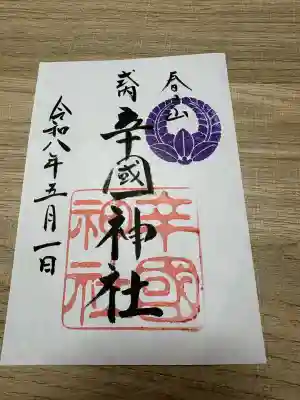 春日山
式内
辛國神社
辛國
神社
令和八年五月一日